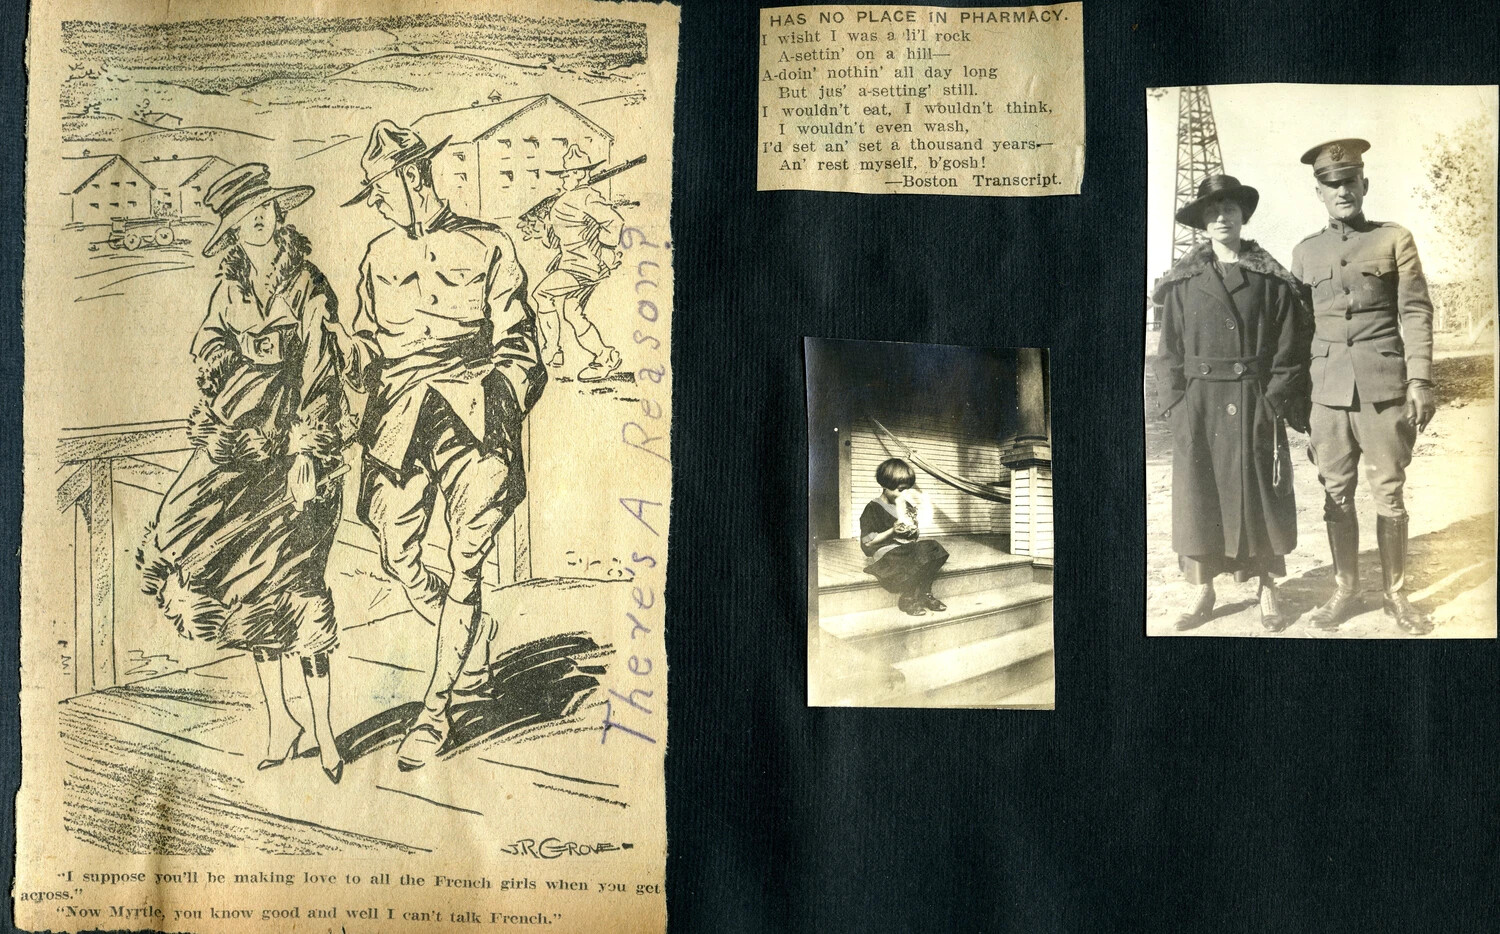 J.R. GROVE
There's A Reason?
"I suppose you'll be making love to all the French girls when you get
across."
"Now Myrtle, you know good and well I can't talk French."
HAS NO PLACE IN PHARMACY.
I wisht I was a li'l rock
A-settin' on a hill—
A-doin' nothin' all day long
But jus' a-setting' still.
I wouldn't eat, I wouldn't think,
I wouldn't even wash,
I'd set an' set a thousand years—
An' rest myself, b'gosh!
—Boston Transcript.